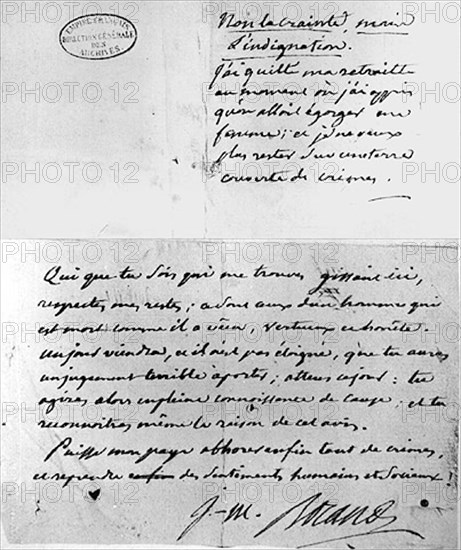 EMPIRE FRANÇAIS
DIRECTION GÉNÉRALE
DES
ARCHIVES
Non la crainte, mais
l'indignation.
J'ai quitté ma retraitte
au moment où j'ai appris
qu'on alloit égorger ma
femme; et je ne veux
plus rester sur une terre
couverte de crimes.
Qui que tu sois qui me trouves gissant ici,
respectes mes restes; ce sont ceux d'un homme qui
est mort comme il a vécu, vertueux et honnête.
un jour viendra, et il n'est pas éloigné, que tu auras
un jugement terrible à porter; attens ce jour: tu
agiras alors en pleine connoissance de cause, et tu
reconnoitras même la raison de cet avis.
Puisse mon pays abhorer enfin tant de crimes,
et reprendre enfin des sentiments humains et sociaux.
J.-M. Roland
PHOTO 12